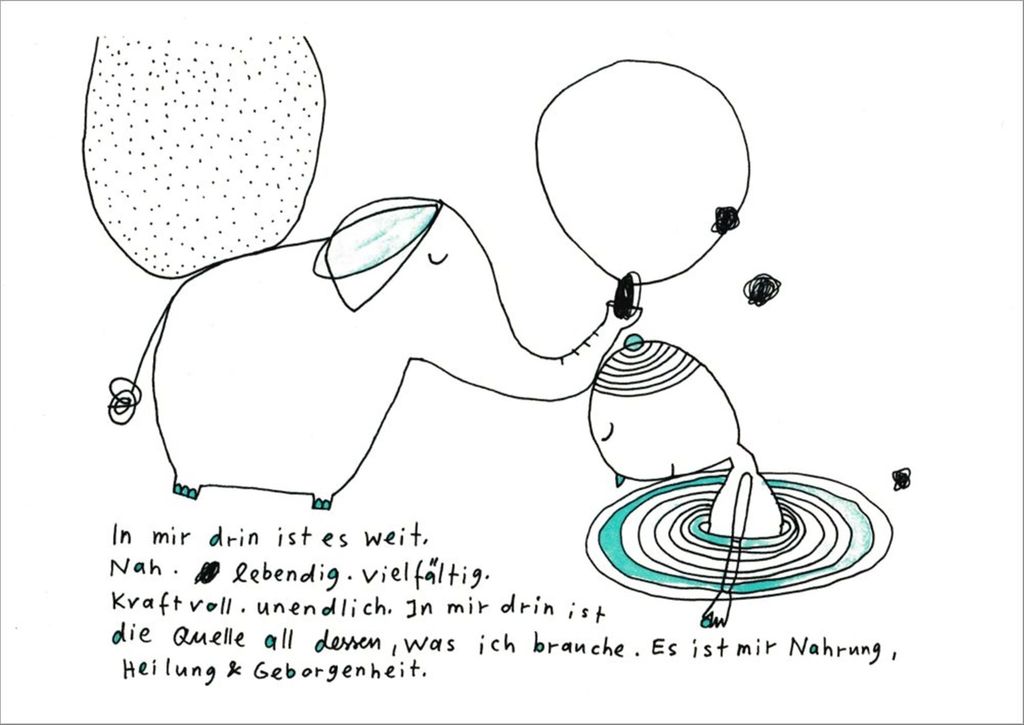 In mir drin ist es weit.
Nah. lebendig. vielfältig.
Kraftvoll. unendlich. In mir drin ist
die Quelle all dessen, was ich brauche. Es ist mir Nahrung,
Heilung & Geborgenheit.